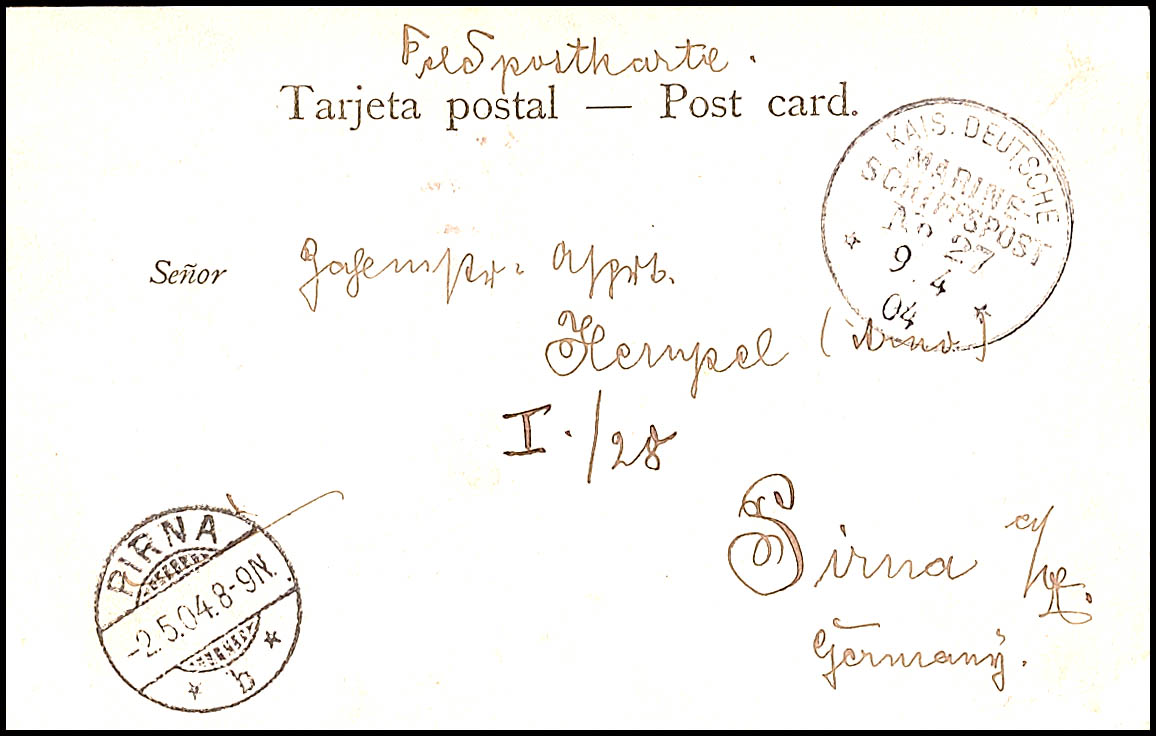 Feldpostkarte.
Tarjeta postal — Post card.
KAIS. DEUTSCHE
MARINE-
SCHIFFSPOST
No 27
9. 4
04
Señor
Hempel
I./28
Pirna a/
Germany.
PIRNA
-2.5.04.8-9N.
b